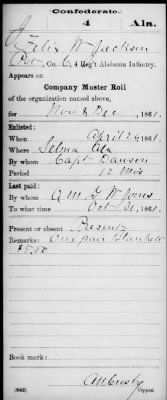 Confederate.
4 Ala.
Felix W Jackson
Pvt, Co. C, 4 Reg't Alabama Infantry.
Appears on
Company Muster Roll
of the organization named above,
for Nov & Dec, 1861.
Enlisted:
When April 26, 1861.
Where Selma Ala
By whom Capt Dawson
Period 12 Mos
Last paid:
By whom A M G W Jones
To what time Oct 31, 1861.
Present or absent Present
Remarks: One pair Blankets
$5.50
Book mark:
(642)
Copyist.